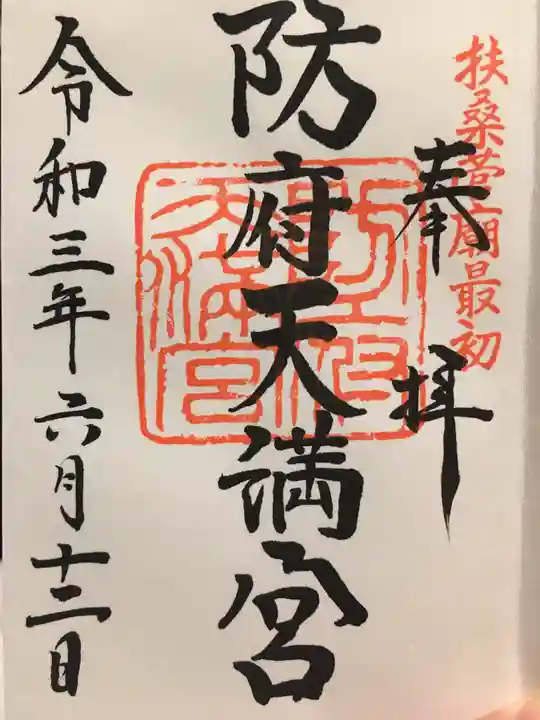 扶桑菅廟最初
奉拝
防府天満宮
防府天満宮
令和三年六月十二日